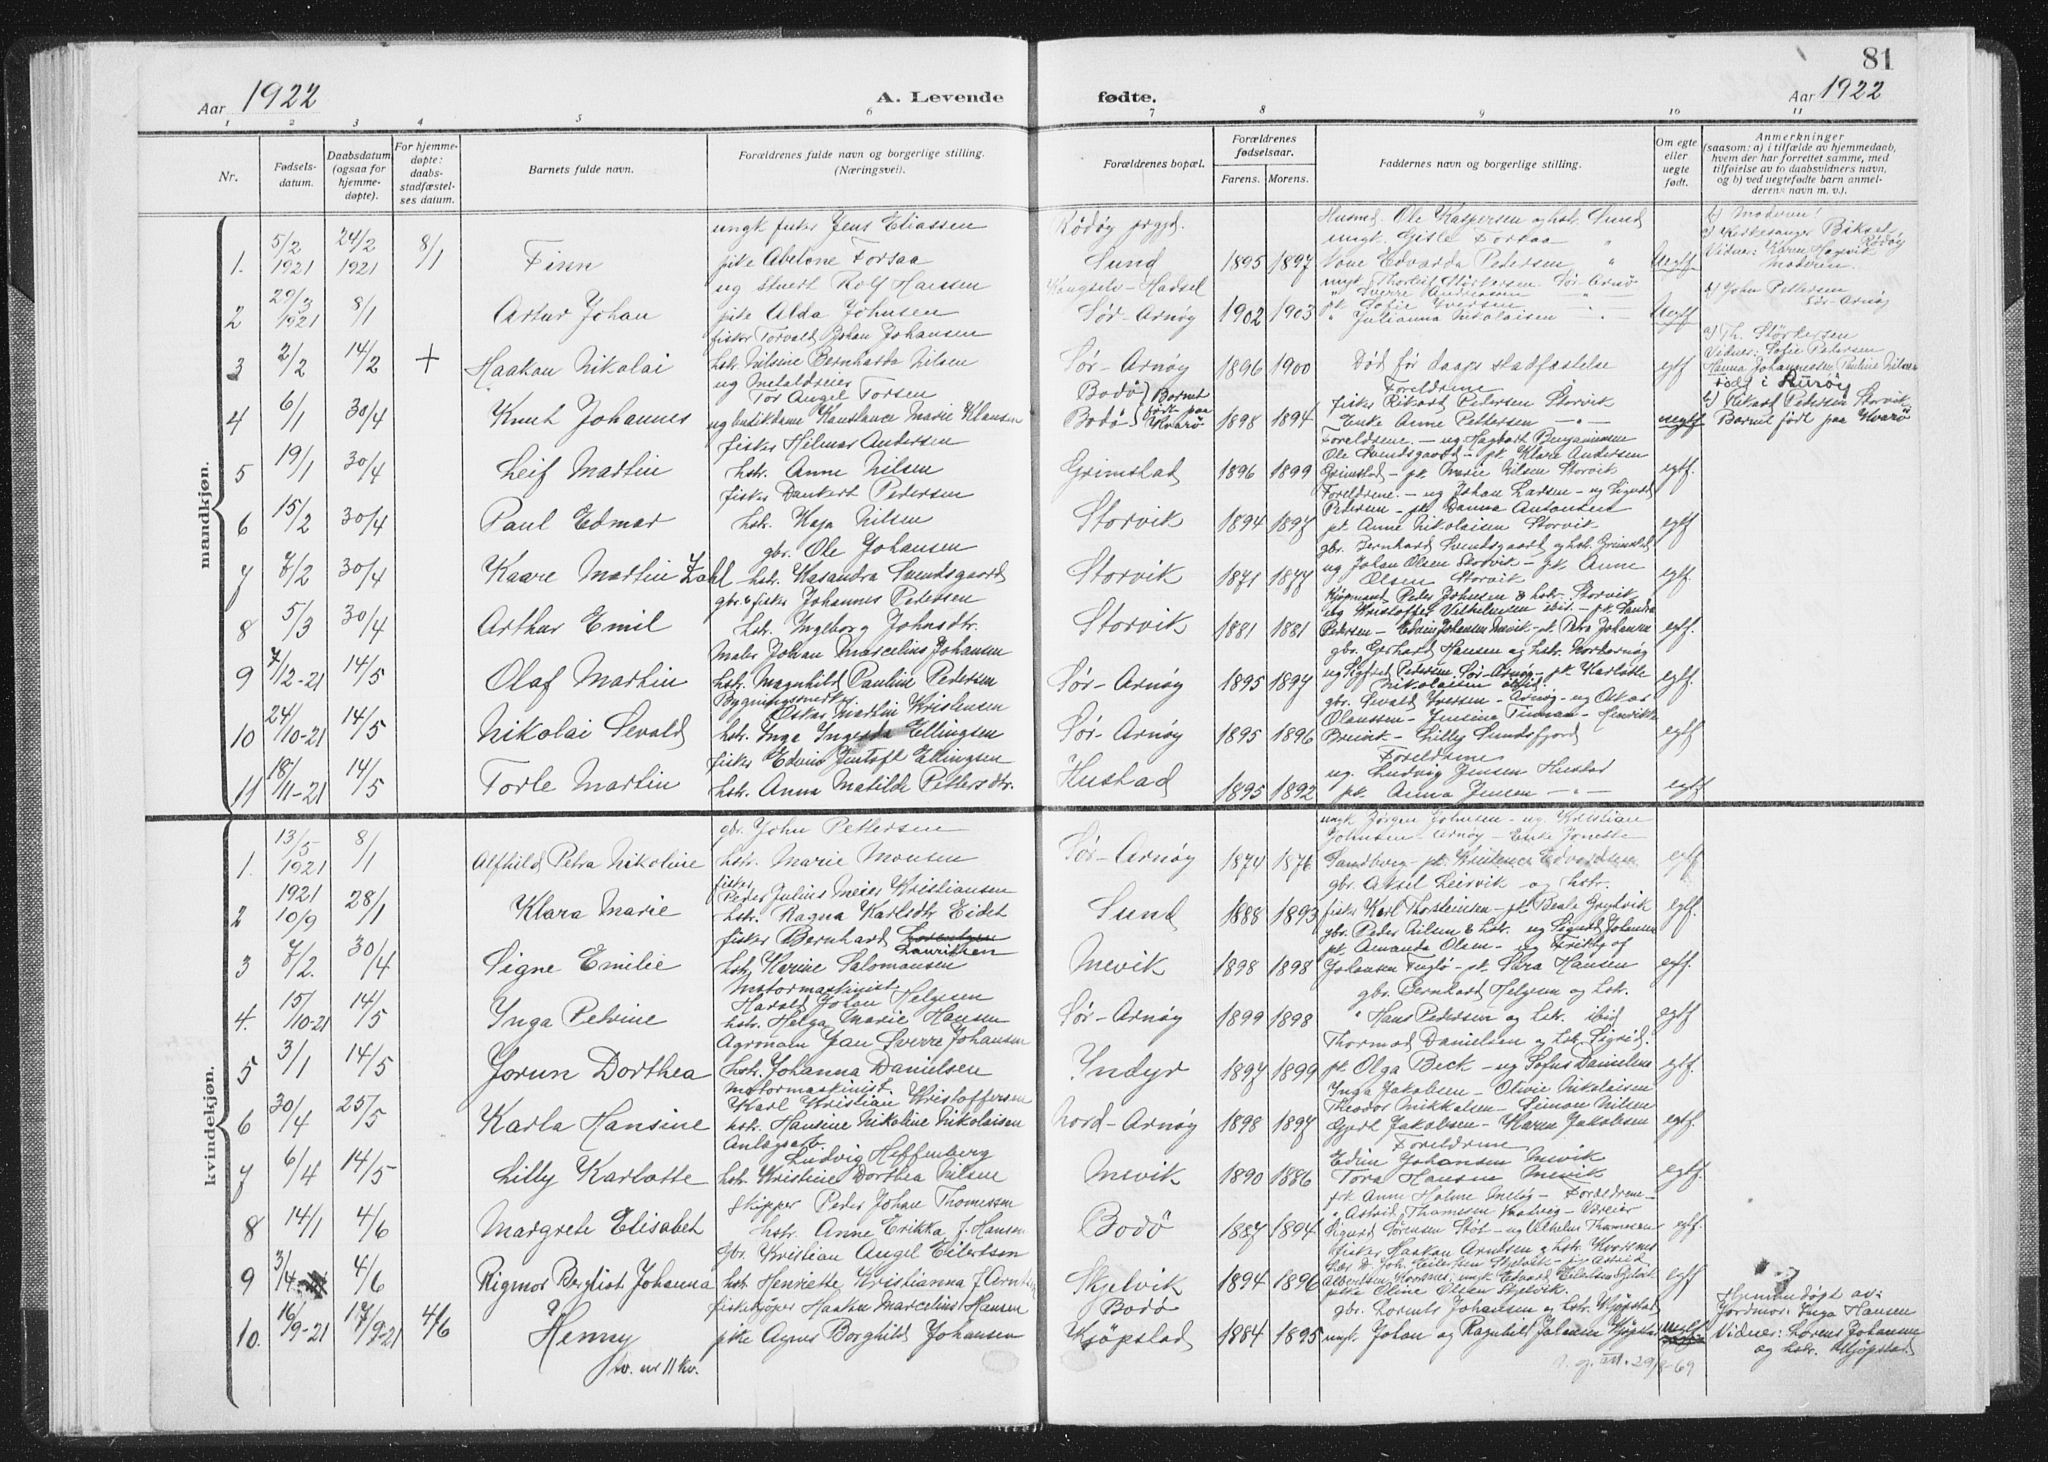 81
Aar 1922
A. Levende fødte.
Aar 1922
1 2 3 4 5 6 7 8 9 10 11
Nr.
Fødselsdatum.
Daabsdatum (ogsaa for hjemmedøpte).
For hjemmedøpte: daabsstadfæstelses datum.
Barnets fulde navn.
Forældrenes fulde navn og borgerlige stilling. (Næringsvei).
Forældrenes bopæl.
Forældrenes fødselsaar.
Farens. Morens.
Faddernes navn og borgerlige stilling.
Om egte eller uegte født.
Anmerkninger
(saasom: a) i tilfælde av hjemmedaab, hvem der har forrettet samme, med tilføielse av to daabsvidners navn, og b) ved uegtefødte barn anmelderens navn m. v.).
mandkjøn.
1. 5/2 1921 24/2 1921 8/1 Finn
ungk fisker Jens Eliassen
pike Abelone Forsaa
Rødøy prgjd.
Sund 1895 1897
Husmd. Ole Kaspersen og hstr. Sund
ungk. Gisle Forsaa
Edvarda Pedersen
Uegtf
b) Moderen!
a) Kirkesanger Biksel, Rødøy
Vidner: Karen Hagevik
Moderen.
2 29/3 1921 8/1 Artur Johan
ug Stuert Rolf Hansen
pike Alda Johnsen
Kongselv - Hadsel
Sør-Arnøy 1902 1903
ungk. Thorleif Størkersen. Sør-Arnø
" Sverre Andreassen
pk. Sofie Iversen
" Julianna Nikolaisen
Uegtf
b) John Pettersen
Sør-Arnøy
3 2/2 14/2 + Haakon Nikolai
fisker Torvald Johan Johansen
hstr. Nilsine Bernharda Nilsen
Sør-Arnøy 1896 1900
Død før daaps stadfæstelse
egtf
a) Th. Størkersen
Vidner: Sofie Petersen
Hanna Johannessen, Pauline Nilsen
4 6/1 30/4 Knut Johannes
ug Metaldreier
Tor Angel Torsen
ug butikdame Konstance Marie Klausen
Bodø
Bodø (Barnet født paa Hvarø
1898 1894
Foreldrene
fisker Rikart Petersen Storvik
Enke Anne Pettersen - " -
uegtf
født i
b) Rikart Petersen Storvik
Barnet født paa Hvarø
5 19/1 30/4 Leif Martin
fisker Hilmar Andersen
hstr. Anne Nilsen
Grimstad 1896 1899
Foreldrene. - ug Hagbart Benjaminsen
Ole Svendsgaard - pk Klara Andersen
Grimstad - pk. Marie Nilsen Storvik
egtf.
6 15/2 30/4 Paul Edmar
fisker Dankert Pedersen
hstr. Kaja Nilsen
Storvik 1894 1897
Foreldrene. - ug Johan Larsen - ug Sigurd
Petersen - pk Danna Antonsen
pk. Anne Nikolaisen Storvik
egtf
7 7/2 30/4 Kaare Martin Zahl
gbr. Ole Johansen
hstr. Kasandra Svendsgaard
Storvik 1871 1877
gbr. Bernhard Svendsgaard og hst. Grimstad
ug Johan Olsen Storvik - pk Anne
Olsen Storvik
egtf.
8 5/3 30/4 Arthur Emil
gbr. & fisker Johannes Petersen
hstr. Ingeborg Johnsdtr.
Storvik 1881 1881
Kjøpmand Peder Johnsen & hstr. Storvik
ug Kristoffer Vilhelmsen ibid. - pk. Sandra
Petersen - Edvin Johansen Mevik - pk. Petra Johansen
egtf.
9 7/12-21 14/5 Olaf Martin
Maler Johan Marcelius Johansen
hstr. Magnhild Pauline Pedersen
Sør-Arnøy 1895 1897
gbr. Gerhard Hansen og hstr. Nordarnøy
ug Sigfred Pedersen Sør-Arnøy - pk Karlotte
Nikolaisen ibid.
egtf.
10 24/10-21 14/5 Nikolai Sevald
Bygningssnedk.
Oskar Martin Kristensen
hstr. Inga Ingerda Ellingsen
Sør-Arnøy 1895 1896
gbr. Sevald Iversen - Arnøy - ug Oskar
Olaussen - Jensine Tuman - Henrikke
Breivik - Lilly Sundsfjord
egtf
11 18/11-21 14/5 Torle Martin
fisker Edvin Jentoft Ellingsen
hstr. Anna Matilde Pettersdtr.
Hustad 1895 1892
Foreldrene
ug. Ludvig Jensen Hustad
pk. Anna Jensen - " -
egtf
kvindekjøn.
1. 13/5 1921 8/1 Alfhild Petra Nikoline
gbr. John Pettersen
hstr. Marie Monsen
Sør-Arnøy 1874 1876
ungk Jørgen Johnsen - ug. Kristian
Johnsen - Arnøy - Enke Jonette
Sandberg - pk. Kristence Edvardsen
egtf
2 1921 10/9 28/1 Klara Marie
fisker
Peder Julius Meier Kristiansen
hstr. Ragna Karlsdtr Eidet
Sund 1888 1893
gbr. Aksel Leirvik og hstr.
fisker Karl Thorsteinsen - pk Beale Grytvik
egtf.
3 7/2. 30/4 Signe Emilie
fisker Bernhard Lorentzen
Lauritsen
hstr. Karine Salomonsen
Mevik 1898 1898
gbr. Peder Nilsen & hstr. ug Sigurd Johansen
pk. Amanda Olsen - ug Fritjof
Johansen Fuglø - pk. Sara Hansen
egtf.
4. 15/10-21 14/5 Inga Pelvine
Motormaskinist
Harald Johan Helgesen
hstr. Helga Marie Hansen
Sør-Arnøy 1899 1898
gbr. Bernhard Helgesen og hstr.
" Hans Pedersen og hstr. ibid
egtf
5 3/1 14/5 Jorun Dorthea
Agronom Jan Sverre Johansen
hstr. Johanna Danielsen
Indyr 1897 1899
Thormod Danielsen og hstr. Sigrid.
pk. Olga Beck - ug Sofus Danielsen
egtf.
6 30/4 25/5 Karla Hansine
Motormaskinist.
Karl Kristian Kristoffersen
hstr. Hansine Nikoline Nikolaisen
Nord-Arnøy 1898 1897
Inga Jakobsen - Otivie Nikolaisen
Theodor Mikkalsen - Simon Nilsen
Gjert Jakobsen - Karen Jakobsen
egtf.
7 6/4 14/5 Lilly Karlotte
Anlagsarb.
Ludvig Heffenberg
hstr. Kristine Dorthea Nilsen
Mevik 1890 1886
Foreldrene
Edvin Johansen Mevik
Tora Hansen Mevik
egtf.
8 14/1 4/6 Margrete Elisabet
Skipper Peder Johan Thomessen
hstr. Anne Erikka f. Hansen
Bodø 1887 1894
frk. Anne Holme Meløy - Foreldrene -
" Astrid Thomesen
Sigurd Sørensen Støt - ug Vilhelm Thomesen
egtf.
9 3/4 4/6 Rigmor Bergliot Johanna
Gbr. Kristian Angel Eilertsen
hstr Henriette Kristianna f. Arntsen
Skjelvik 1894 1896
fisker Haakon Arntsen & hstr. Kvarsnes
pike Oline Olsen Skjelvik.
egtf
10. 16/9-21 17/9-21 4/6 Henny
fiskekjøper Haakon Marcelius Hansen
pike Agnes Borghild Johansen
Bodø
Kjøpstad 1884 1895
gbr. Lorents Johansen og hstr. Kjøpstad
ungk. Johan og Ragnhild Johansen Kjøpstad
uegtf.
Hjemmedøpt av:
Jordmor: Inga Hansen
Vidner: Lorens Johansen
og hstr. Kjøpstad.
tv. nr 11 kv.